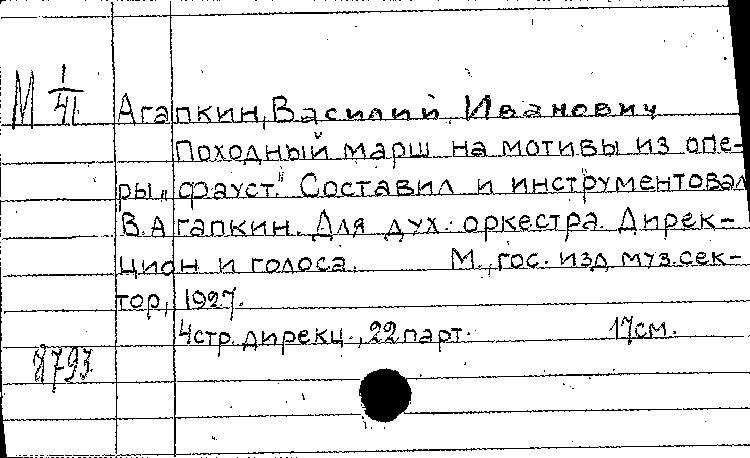 М 1/41 Агапкин, Василий Иванович
Походный марш на мотивы из опе-
ры „Фауст." Составил и инструментовал
В. Агапкин. Для дух. оркестра. Дирек-
цион и голоса. М., гос. изд. муз. сек-
тор, 1927.
4 стр. дирекц., 22 парт. 17 см.
8793